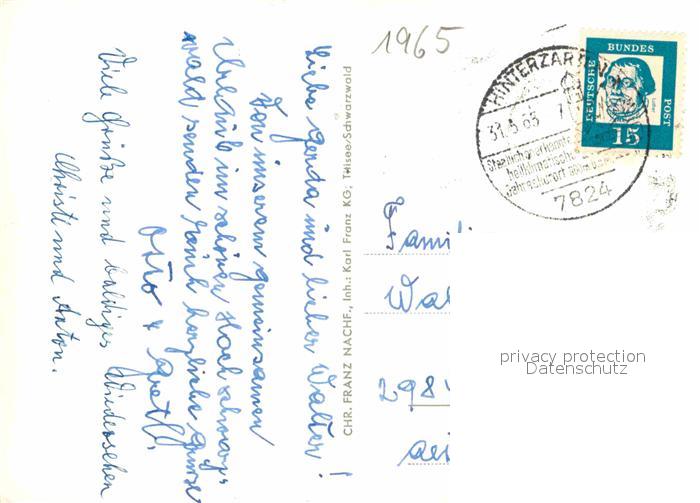 1965
Liebe Gerda und lieber Walter!
Von unserem gemeinsamen
Urlaub im schönen Hochschwarz-
wald senden Euch herzliche Grüsse
Otto + Gretl.
Viele Grüße und baldiges Wiedersehen
Christl und Anton.
CHR. FRANZ NACHF., Inh.: Karl Franz KG, Titisee/Schwarzwald
HINTERZARTEN
31.5.63
Staatlich anerkannter
heilklimatischer
Jahreskurort
7824
DEUTSCHE
BUNDES
POST
15
Fami
Wal
298
privacy protection
Datenschutz